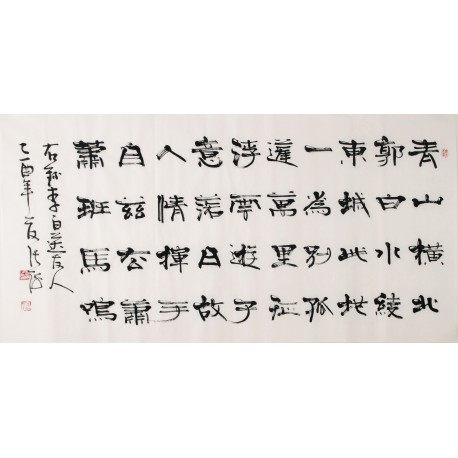 青山橫北
郭白水繞
東城此地
一為別孤
蓬萬里征
浮雲遊子
意落日故
人情揮手
自茲去蕭
蕭班馬鳴
右錄李白送友人
乙酉年夏